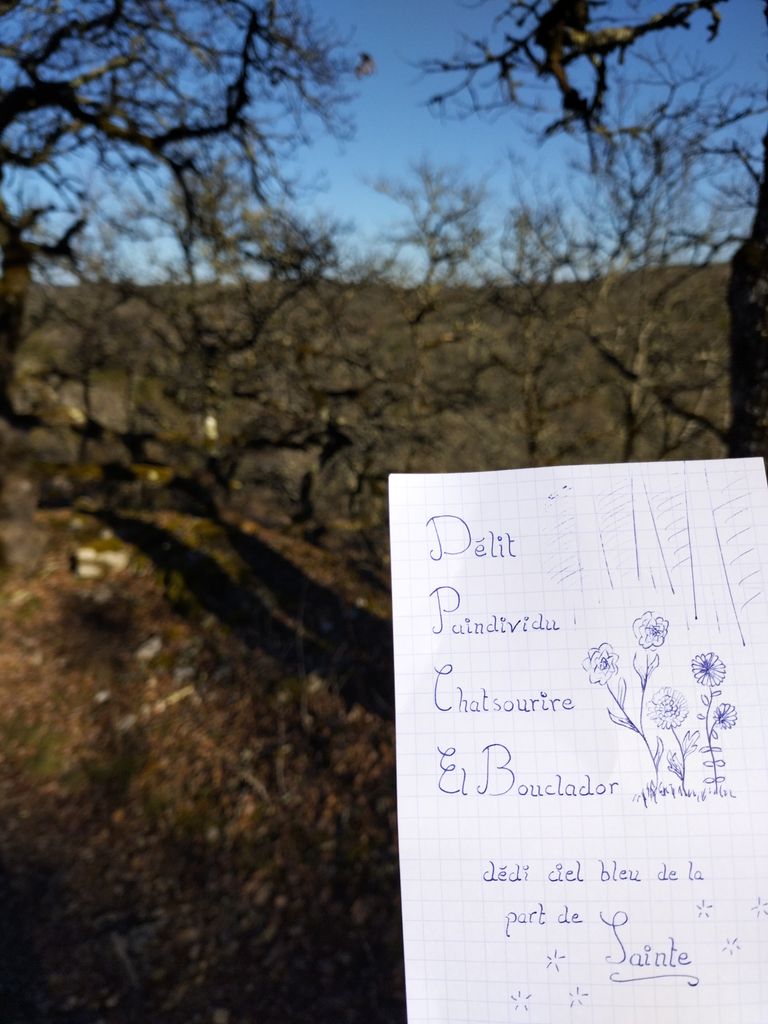 Délit
Paindividu
Chatsourire
El Bouclador
dédi ciel bleu de la
part de
Sainte